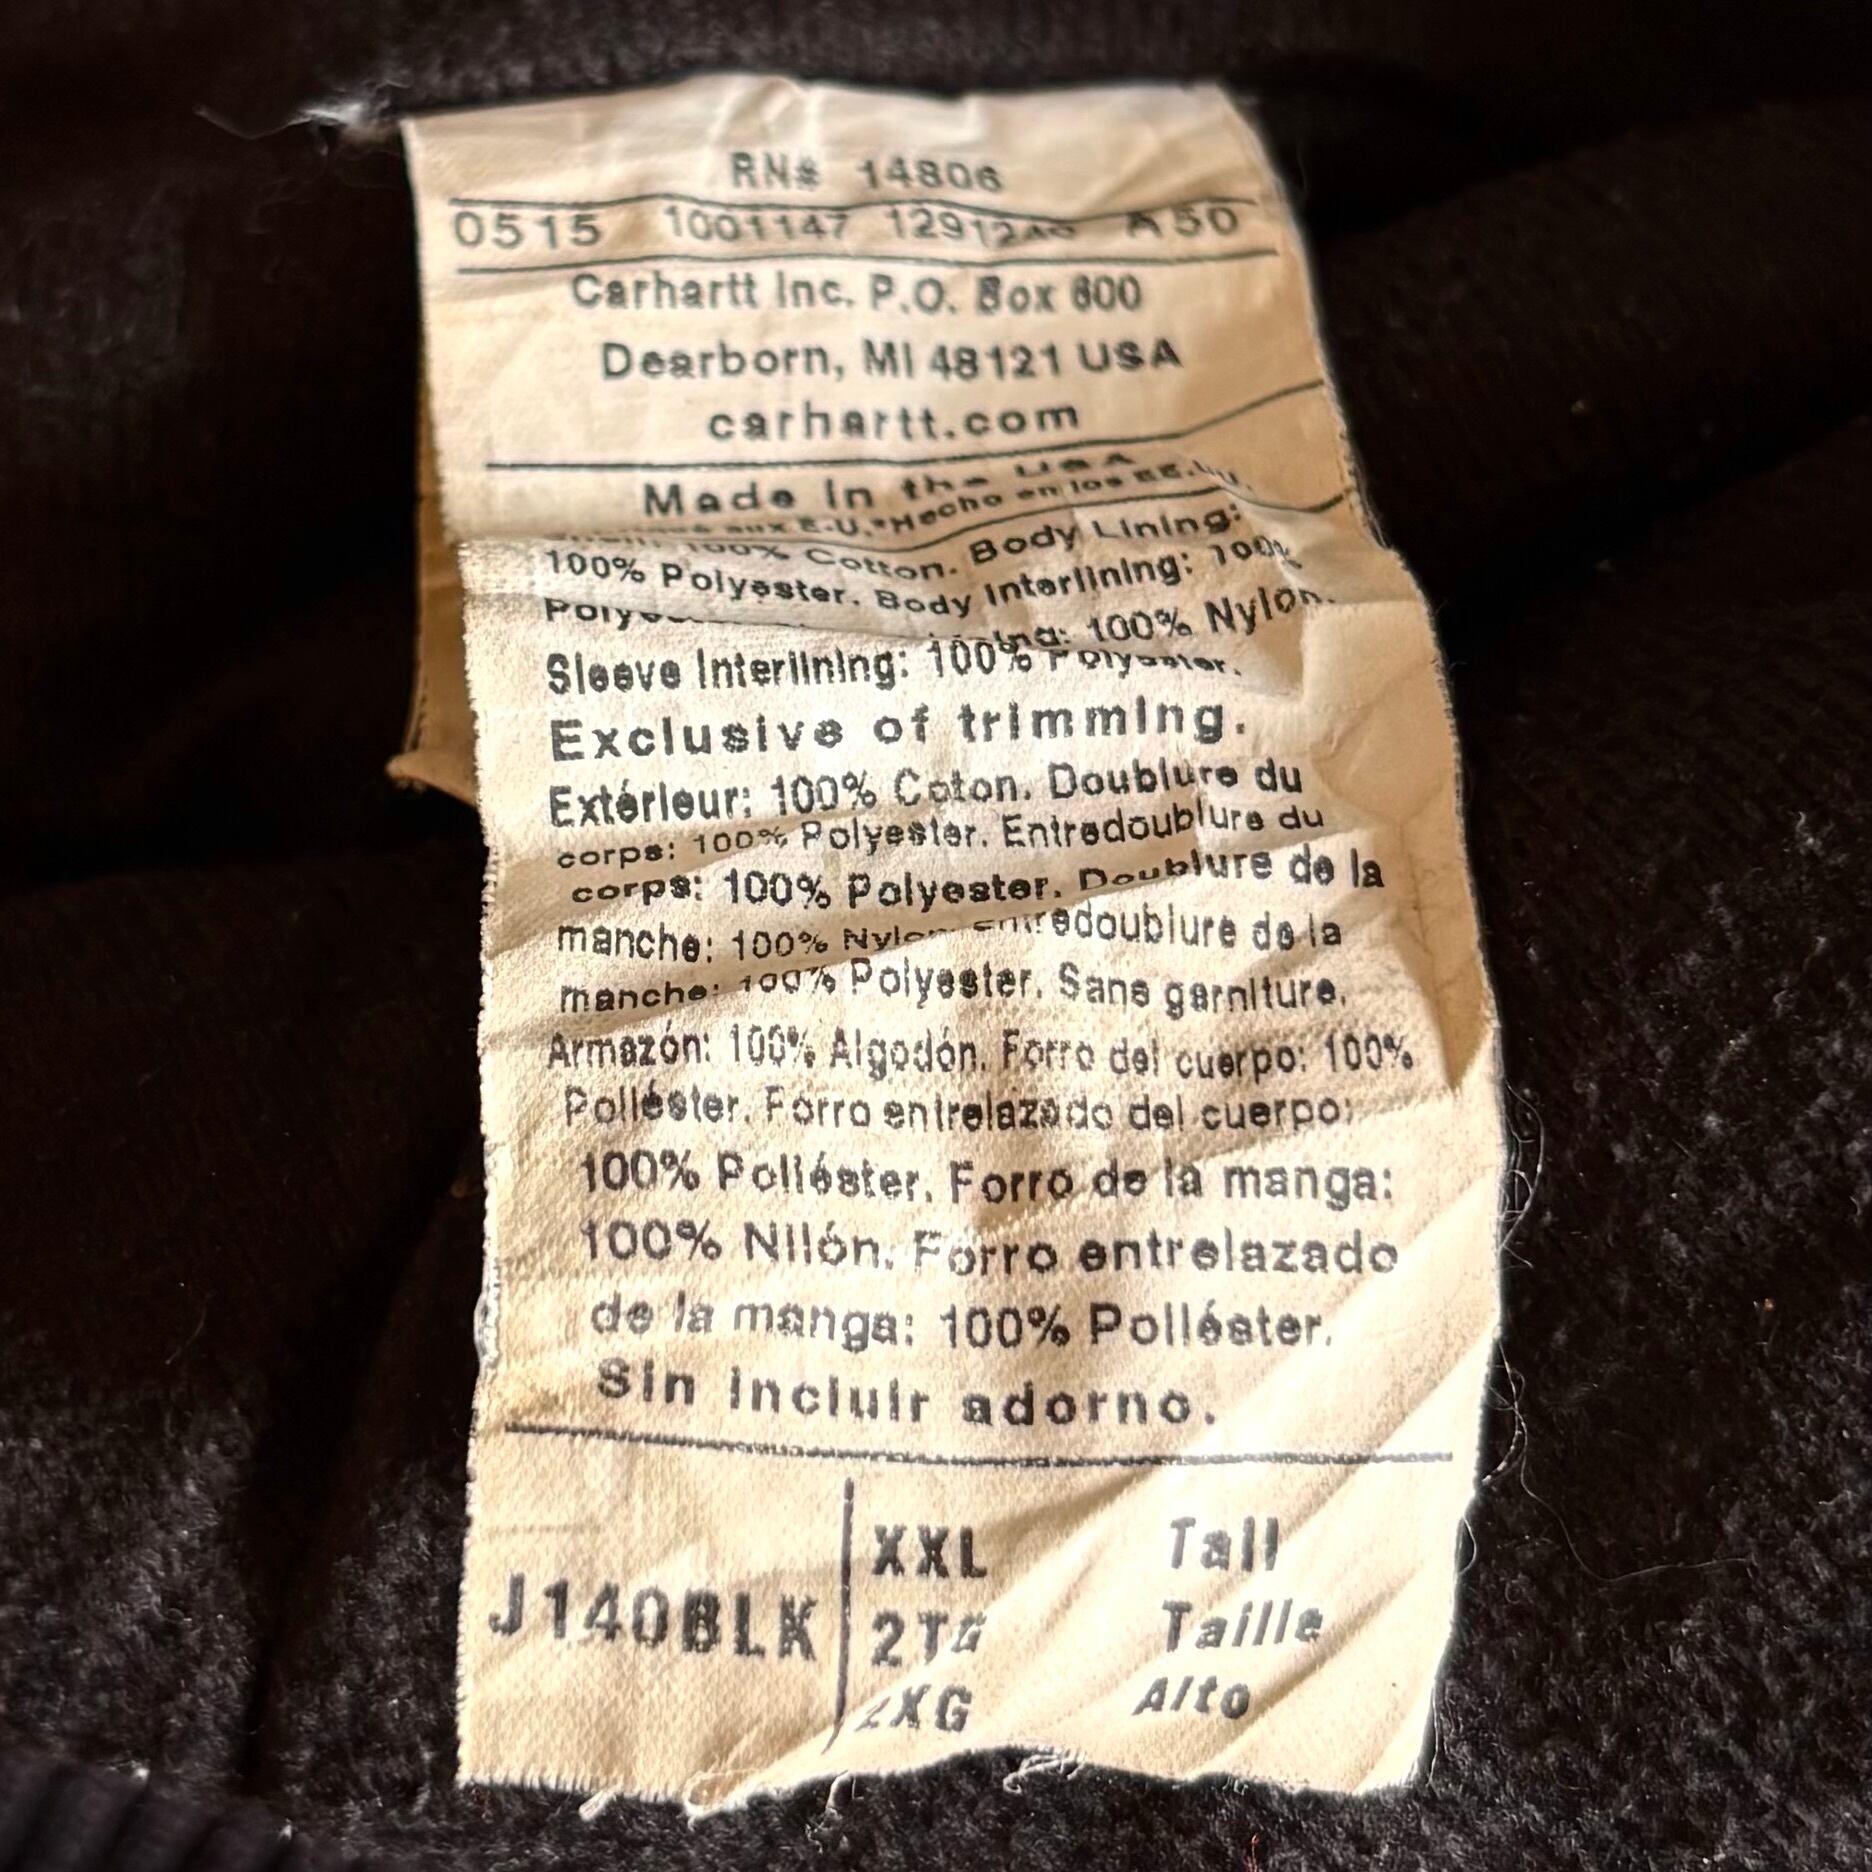 RN# 14806
0515 1001147 A50
Carhartt Inc. P.O. Box 600
Dearborn, MI 48121 USA
carhartt.com
Made in the USA
aux E-U.*Hecho en los EE.UU.
100% Cotton. Body Lining:
100% Polyester. Body Interlining: 100%
100% Nylon.
Sleeve Interlining: 100% Polyester.
Exclusive of trimming.
Extérieur: 100% Coton. Doublure du
corps: 100% Polyester. Entredoublure du
corps: 100% Polyester. Doublure de la
manche: 100% Nylon. Entredoublure de la
manche: 100% Polyester. Sans garniture.
Armazón: 100% Algodón. Forro del cuerpo: 100%
Poliéster. Forro entrelazado del cuerpo:
100% Poliéster. Forro de la manga:
100% Nilón. Forro entrelazado
de la manga: 100% Poliéster.
Sin incluir adorno.
J140BLK
XXL Tall
2TG Taille
2XG Alto